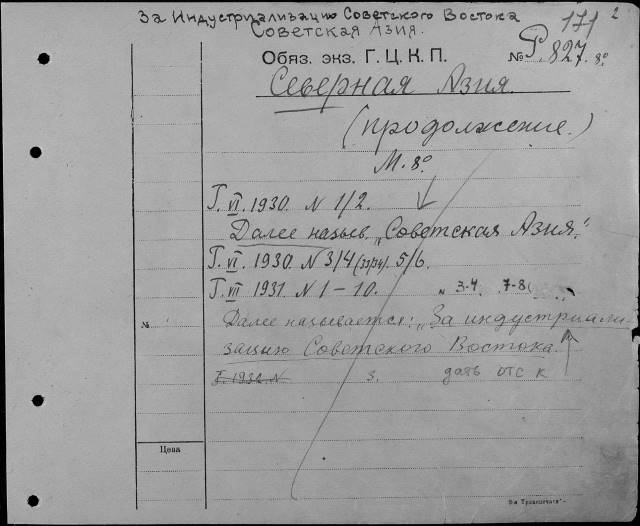 За Индустриализацию Советского Востока
Советская Азия.
171 2
Обяз. экз. Г. Ц. К. П. № Р.827. 8º
Северная Азия.
(продолжение.)
М. 8º
Г. VI. 1930. N 1/2.
Далее назыв. „Советская Азия."
Г. VI. 1930. N 3/4 (33/34). 5/6.
Г. VII 1931. N 1–10. N 3-4. 7-8
№ Далее называется: „За индустриали-
зацию Советского Востока.
Г. 1932. N 3. дать отс к
Цена